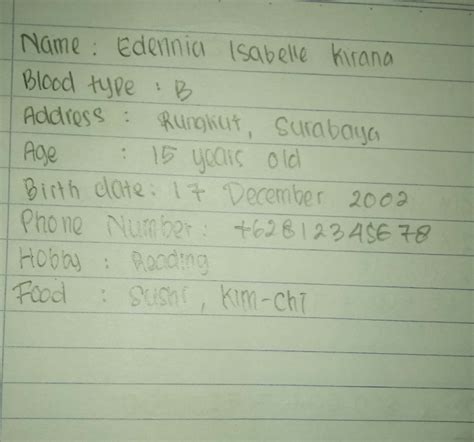 Name : Edennia Isabelle Kirana
Blood type : B
Address : Rungkut, Surabaya
Age : 15 years old
Birth date : 17 December 2002
Phone Number : +62812345678
Hobby : Reading
Food : Sushi, Kim-chi